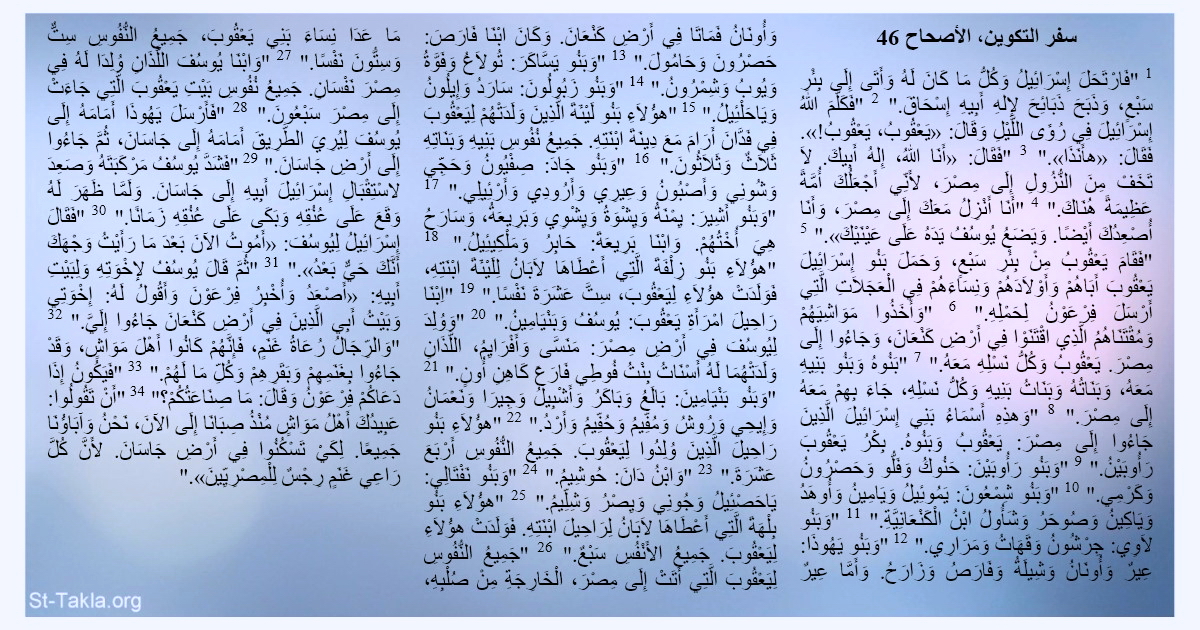 سفر التكوين، الأصحاح 46
1 "فَارْتَحَلَ إِسْرَائِيلُ وَكُلُّ مَا كَانَ لَهُ وَأَتَى إِلَى بِئْرِ
سَبْعٍ، وَذَبَحَ ذَبَائِحَ لإِلهِ أَبِيهِ إِسْحَاقَ." 2 "فَكَلَّمَ اللهُ
إِسْرَائِيلَ فِي رُؤَى اللَّيْلِ وَقَالَ: «يَعْقُوبُ، يَعْقُوبُ!».
فَقَالَ: «هأَنَذَا»." 3 "فَقَالَ: «أَنَا اللهُ، إِلهُ أَبِيكَ. لاَ
تَخَفْ مِنَ النُّزُولِ إِلَى مِصْرَ، لأَنِّي أَجْعَلُكَ أُمَّةً
عَظِيمَةً هُنَاكَ." 4 "أَنَا أَنْزِلُ مَعَكَ إِلَى مِصْرَ، وَأَنَا
أُصْعِدُكَ أَيْضًا. وَيَضَعُ يُوسُفُ يَدَهُ عَلَى عَيْنَيْكَ»." 5
"فَقَامَ يَعْقُوبُ مِنْ بِئْرِ سَبْعٍ، وَحَمَلَ بَنُو إِسْرَائِيلَ
يَعْقُوبَ أَبَاهُمْ وَأَوْلاَدَهُمْ وَنِسَاءَهُمْ فِي الْعَجَلاَتِ الَّتِي
أَرْسَلَ فِرْعَوْنُ لِحَمْلِهِ." 6 "وَأَخَذُوا مَوَاشِيَهُمْ
وَمُقْتَنَاهُمُ الَّذِي اقْتَنَوْا فِي أَرْضِ كَنْعَانَ، وَجَاءُوا إِلَى
مِصْرَ. يَعْقُوبُ وَكُلُّ نَسْلِهِ مَعَهُ." 7 "بَنُوهُ وَبَنُو بَنِيهِ
مَعَهُ، وَبَنَاتُهُ وَبَنَاتُ بَنِيهِ وَكُلُّ نَسْلِهِ، جَاءَ بِهِمْ مَعَهُ
إِلَى مِصْرَ." 8 "وَهذِهِ أَسْمَاءُ بَنِي إِسْرَائِيلَ الَّذِينَ
جَاءُوا إِلَى مِصْرَ: يَعْقُوبُ وَبَنُوهُ. بِكْرُ يَعْقُوبَ
رَأُوبَيْنُ." 9 "وَبَنُو رَأُوبَيْنَ: حَنُوكُ وَفَلُّو وَحَصْرُونُ
وَكَرْمِي." 10 "وَبَنُو شِمْعُونَ: يَمُوئِيلُ وَيَامِينُ وَأُوهَدُ
وَيَاكِينُ وَصُوحَرُ وَشَأُولُ ابْنُ الْكَنْعَانِيَّةِ." 11 "وَبَنُو
لاَوِي: جِرْشُونُ وَقَهَاتُ وَمَرَارِي." 12 "وَبَنُو يَهُوذَا:
عِيرٌ وَأُونَانُ وَشِيلَةُ وَفَارِصُ وَزَارَحُ. وَأَمَّا عِيرٌ
وَأُونَانُ فَمَاتَا فِي أَرْضِ كَنْعَانَ. وَكَانَ ابْنَا فَارِصَ:
حَصْرُونَ وَحَامُولَ." 13 "وَبَنُو يَسَّاكَرَ: تُولاَعُ وَفَوَّةُ
وَيُوبُ وَشِمْرُونُ." 14 "وَبَنُو زَبُولُونَ: سَارَدُ وَإِيلُونُ
وَيَاحَلْئِيلُ." 15 "هؤُلاَءِ بَنُو لَيْئَةَ الَّذِينَ وَلَدَتْهُمْ لِيَعْقُوبَ
فِي فَدَّانَ أَرَامَ مَعَ دِينَةَ ابْنَتِهِ. جَمِيعُ نُفُوسِ بَنِيهِ وَبَنَاتِهِ
ثَلاَثٌ وَثَلاَثُونَ." 16 "وَبَنُو جَادَ: صِفْيُونُ وَحَجِّي
وَشُونِي وَأَصْبُونُ وَعِيرِي وَأَرُودِي وَأَرْئِيلِي." 17
"وَبَنُو أَشِيرَ: يِمْنَةُ وَيِشْوَةُ وَيِشْوِي وَبَرِيعَةُ، وَسَارَحُ
هِيَ أُخْتُهُمْ. وَابْنَا بَرِيعَةَ: حَابِرُ وَمَلْكِيئِيلُ." 18
"هؤُلاَءِ بَنُو زِلْفَةَ الَّتِي أَعْطَاهَا لاَبَانُ لِلَيْئَةَ ابْنَتِهِ،
فَوَلَدَتْ هؤُلاَءِ لِيَعْقُوبَ، سِتَّ عَشَرَةَ نَفْسًا." 19 "اِبْنَا
رَاحِيلَ امْرَأَةِ يَعْقُوبَ: يُوسُفُ وَبَنْيَامِينُ." 20 "وَوُلِدَ
لِيُوسُفَ فِي أَرْضِ مِصْرَ: مَنَسَّى وَأَفْرَايِمُ، اللَّذَانِ
وَلَدَتْهُمَا لَهُ أَسْنَاتُ بِنْتُ فُوطِي فَارَعَ كَاهِنِ أُونٍ." 21
"وَبَنُو بَنْيَامِينَ: بَالَعُ وَبَاكَرُ وَأَشْبِيلُ وَجِيرَا وَنَعْمَانُ
وَإِيحِي وَرُوشُ وَمُفِّيمُ وَحُفِّيمُ وَأَرْدُ." 22 "هؤُلاَءِ بَنُو
رَاحِيلَ الَّذِينَ وُلِدُوا لِيَعْقُوبَ. جَمِيعُ النُّفُوسِ أَرْبَعَ
عَشَرَةَ." 23 "وَابْنُ دَانَ: حُوشِيمُ." 24 "وَبَنُو نَفْتَالِي:
يَاحَصْئِيلُ وَجُونِي وَيِصْرُ وَشِلِّيمُ." 25 "هؤُلاَءِ بَنُو
بِلْهَةَ الَّتِي أَعْطَاهَا لاَبَانُ لِرَاحِيلَ ابْنَتِهِ. فَوَلَدَتْ هؤُلاَءِ
لِيَعْقُوبَ. جَمِيعُ الأَنْفُسِ سَبْعٌ." 26 "جَمِيعُ النُّفُوسِ
لِيَعْقُوبَ الَّتِي أَتَتْ إِلَى مِصْرَ، الْخَارِجَةِ مِنْ صُلْبِهِ،
مَا عَدَا نِسَاءَ بَنِي يَعْقُوبَ، جَمِيعُ النُّفُوسِ سِتٌّ
وَسِتُّونَ نَفْسًا." 27 "وَابْنَا يُوسُفَ اللَّذَانِ وُلِدَا لَهُ فِي
مِصْرَ نَفْسَانِ. جَمِيعُ نُفُوسِ بَيْتِ يَعْقُوبَ الَّتِي جَاءَتْ
إِلَى مِصْرَ سَبْعُونَ." 28 "فَأَرْسَلَ يَهُوذَا أَمَامَهُ إِلَى
يُوسُفَ لِيُرِيَ الطَّرِيقَ أَمَامَهُ إِلَى جَاسَانَ، ثُمَّ جَاءُوا
إِلَى أَرْضِ جَاسَانَ." 29 "فَشَدَّ يُوسُفُ مَرْكَبَتَهُ وَصَعِدَ
لاسْتِقْبَالِ إِسْرَائِيلَ أَبِيهِ إِلَى جَاسَانَ. وَلَمَّا ظَهَرَ لَهُ
وَقَعَ عَلَى عُنُقِهِ وَبَكَى عَلَى عُنُقِهِ زَمَانًا." 30 "فَقَالَ
إِسْرَائِيلُ لِيُوسُفَ: «أَمُوتُ الآنَ بَعْدَ مَا رَأَيْتُ وَجْهَكَ
أَنَّكَ حَيٌّ بَعْدُ»." 31 "ثُمَّ قَالَ يُوسُفُ لإِخْوَتِهِ وَلِبَيْتِ
أَبِيهِ: «أَصْعَدُ وَأُخْبِرُ فِرْعَوْنَ وَأَقُولُ لَهُ: إِخْوَتِي
وَبَيْتُ أَبِي الَّذِينَ فِي أَرْضِ كَنْعَانَ جَاءُوا إِلَيَّ." 32
"وَالرِّجَالُ رُعَاةُ غَنَمٍ، فَإِنَّهُمْ كَانُوا أَهْلَ مَوَاشٍ، وَقَدْ
جَاءُوا بِغَنَمِهِمْ وَبَقَرِهِمْ وَكُلِّ مَا لَهُمْ." 33 "فَيَكُونُ إِذَا
دَعَاكُمْ فِرْعَوْنُ وَقَالَ: مَا صِنَاعَتُكُمْ؟" 34 "أَنْ تَقُولُوا:
عَبِيدُكَ أَهْلُ مَوَاشٍ مُنْذُ صِبَانَا إِلَى الآنَ، نَحْنُ وَآبَاؤُنَا
جَمِيعًا. لِكَيْ تَسْكُنُوا فِي أَرْضِ جَاسَانَ. لأَنَّ كُلَّ
رَاعِي غَنَمٍ رِجْسٌ لِلْمِصْرِيِّينَ»."
St-Takla.org